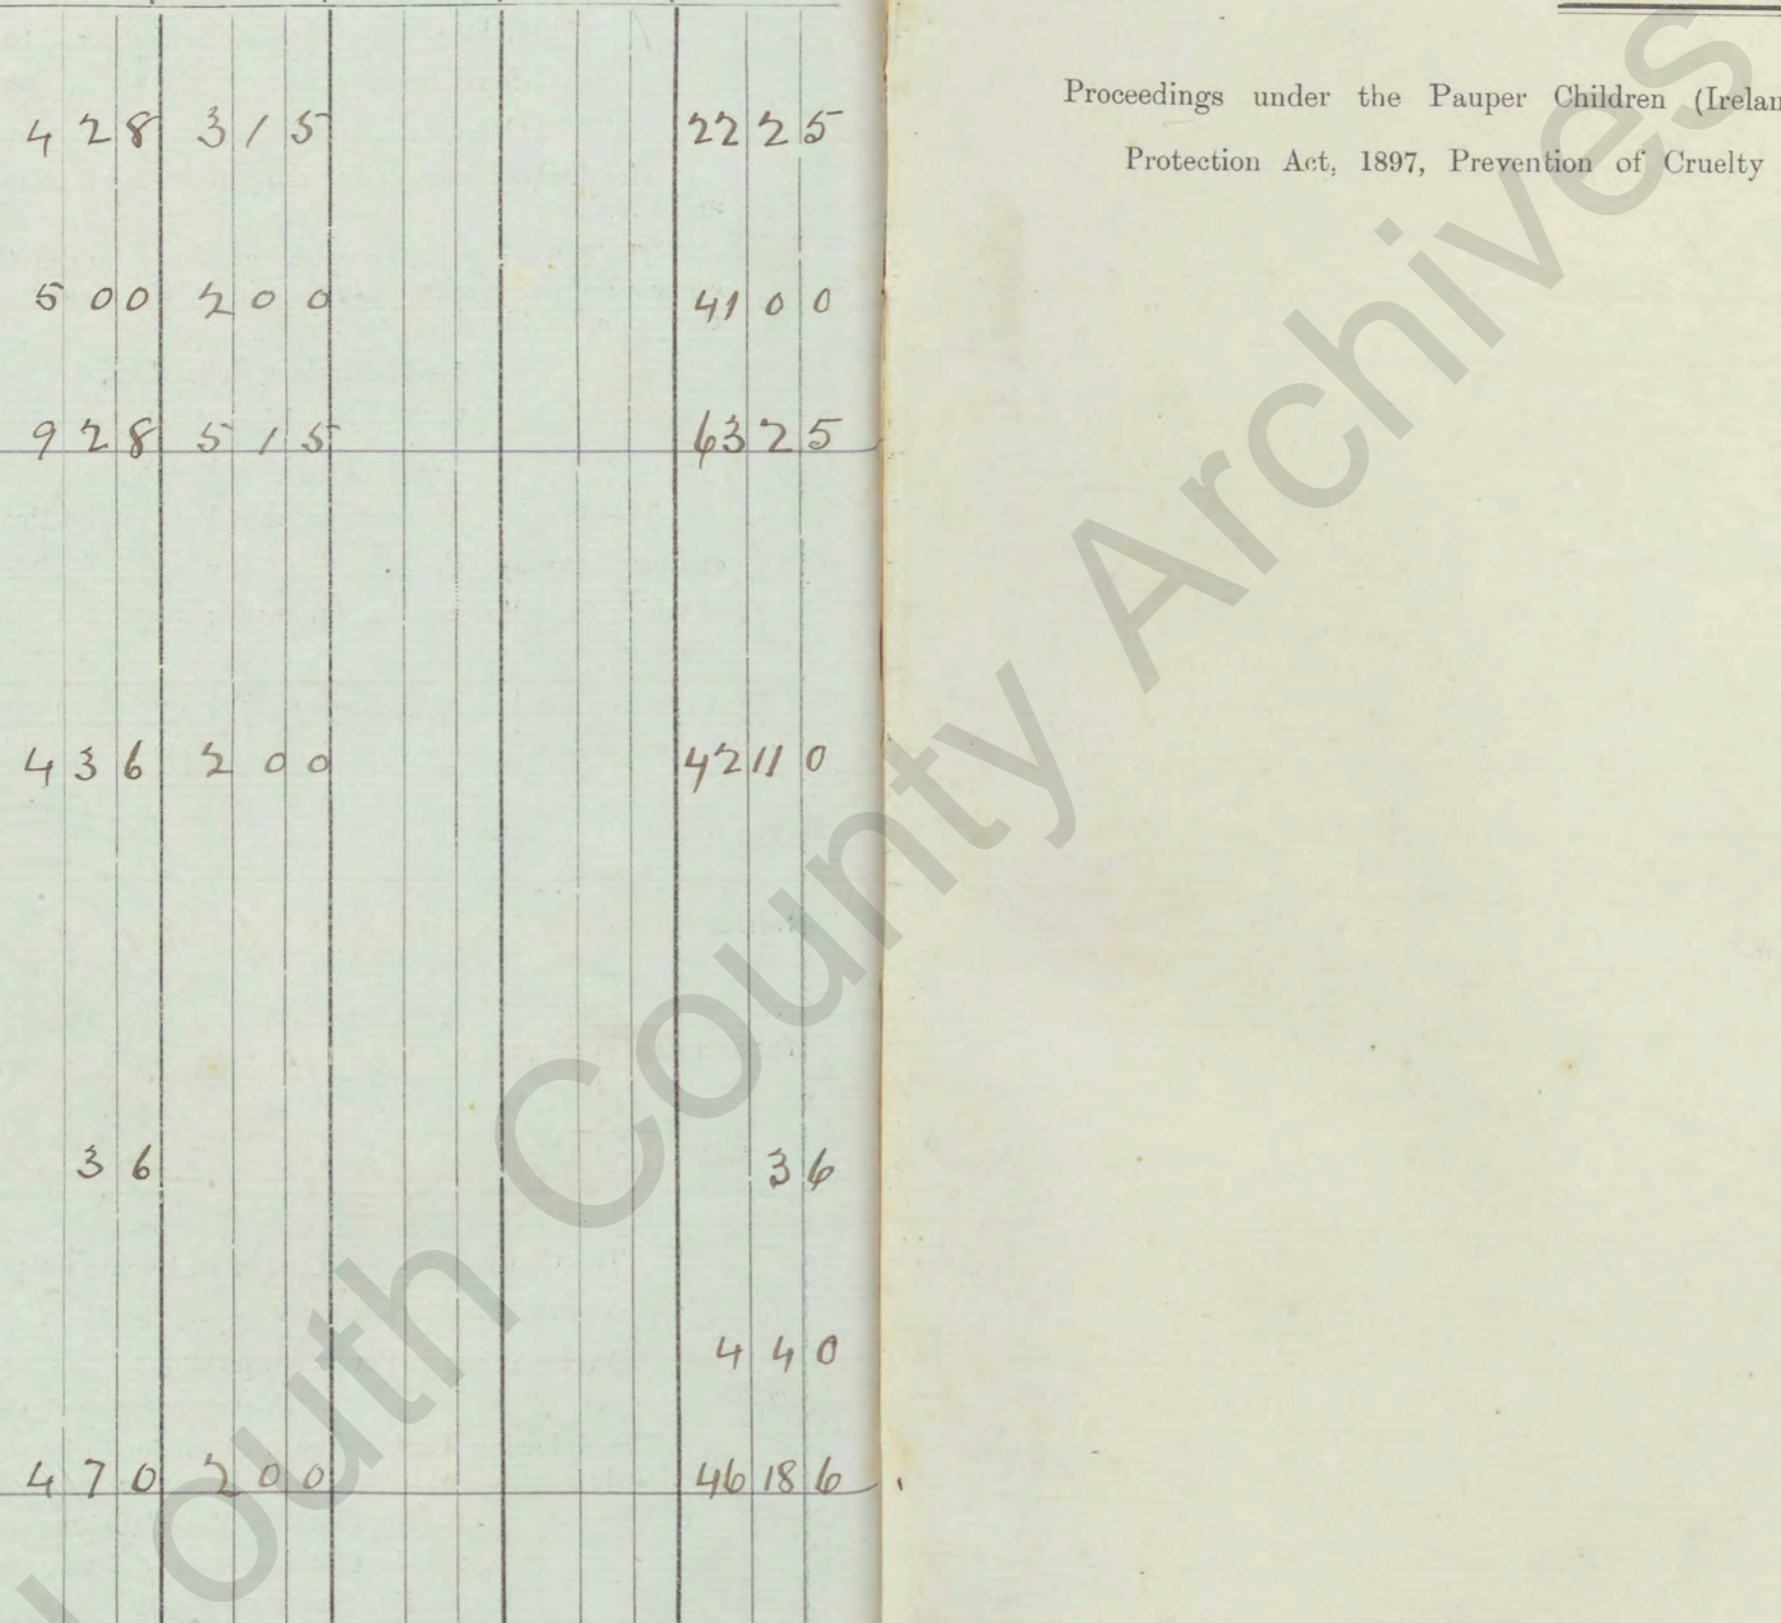 4 2 8 3 1 5 22 2 5
5 0 0 2 0 0 41 0 0
9 2 8 5 1 5 63 2 5
4 3 6 2 0 0 42 11 0
3 6 3 6
4 4 0
4 7 0 2 0 0 46 18 6
Proceedings under the Pauper Children (Irelan
Protection Act, 1897, Prevention of Cruelty
outh County Archives